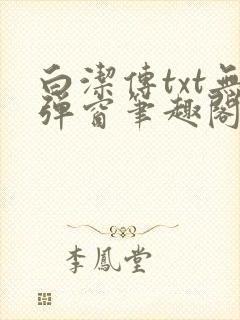 白潔傳txt無
彈窗筆趣閣
李鳳堂